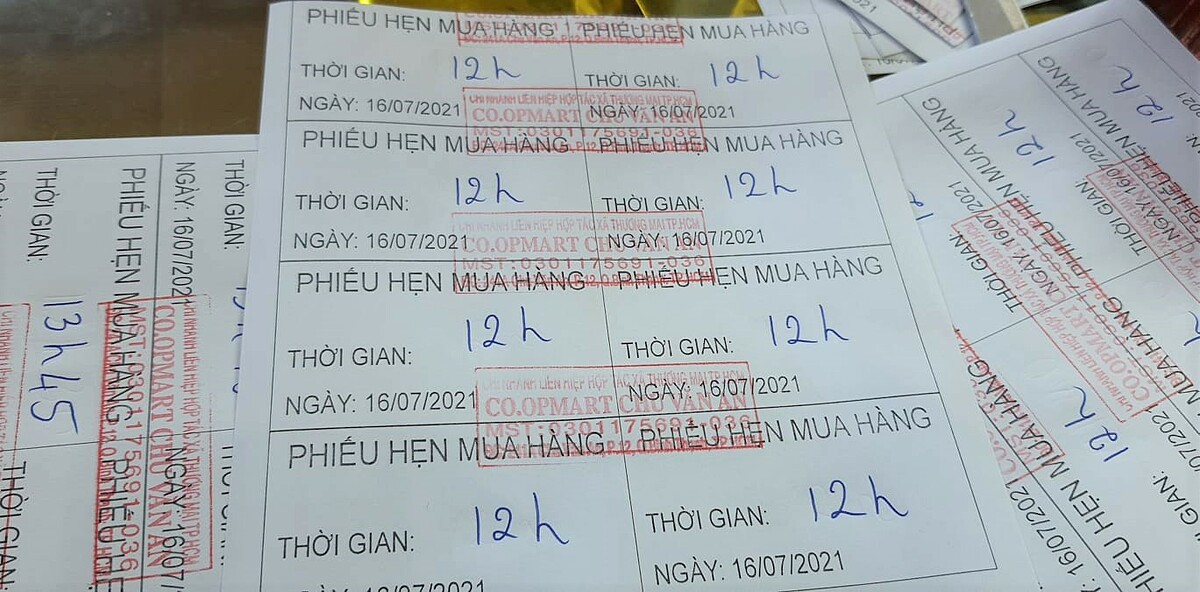 PHIẾU HẸN MUA HÀNG PHIẾU HẸN MUA HÀNG
THỜI GIAN: 12h THỜI GIAN: 12h
CHI NHÁNH LIÊN HIỆP HỢP TÁC XÃ THƯƠNG MẠI TP.HCM
NGÀY: 16/07/2021 NGÀY: 16/07/2021
CO.OPMART CHU VĂN AN
MST:0301175691-036
PHIẾU HẸN MUA HÀNG PHIẾU HẸN MUA HÀNG
THỜI GIAN: 12h THỜI GIAN: 12h
CHI NHÁNH LIÊN HIỆP HỢP TÁC XÃ THƯƠNG MẠI TP.HCM
NGÀY: 16/07/2021 NGÀY: 16/07/2021
CO.OPMART CHU VĂN AN
MST:0301175691-036
PHIẾU HẸN MUA HÀNG PHIẾU HẸN MUA HÀNG
THỜI GIAN: 12h THỜI GIAN: 12h
CHI NHÁNH LIÊN HIỆP HỢP TÁC XÃ THƯƠNG MẠI TP.HCM
NGÀY: 16/07/2021 NGÀY: 16/07/2021
CO.OPMART CHU VĂN AN
MST:0301175691-036
PHIẾU HẸN MUA HÀNG PHIẾU HẸN MUA HÀNG
THỜI GIAN: 12h THỜI GIAN: 12h
NGÀY: 16/07/2021
THỜI GIAN:
NGÀY: 16/07/2021
PHIẾU HẸN MUA HÀNG
THỜI GIAN: 13h45
CHI NHÁNH LIÊN HIỆP HỢP TÁC XÃ THƯƠNG MẠI TP.HCM
CO.OPMART CHU VĂN AN
MST:0301175691-036
NGÀY: 16/07/
PHIẾU HẸN
THỜI GIAN:
PHIẾU HẸN MUA HÀNG
12h
THỜI GIAN: 12h
NGÀY: 16/07/2021
PHIẾU HẸN MUA HÀNG
THỜI GIAN:
NGÀY: 16/07/2021
CO.OPMART
PHIẾU HẸN MUA HÀNG
12h
16/07/2021
PHIẾU HẸN MUA HÀNG
GIAN:
16/07/2021